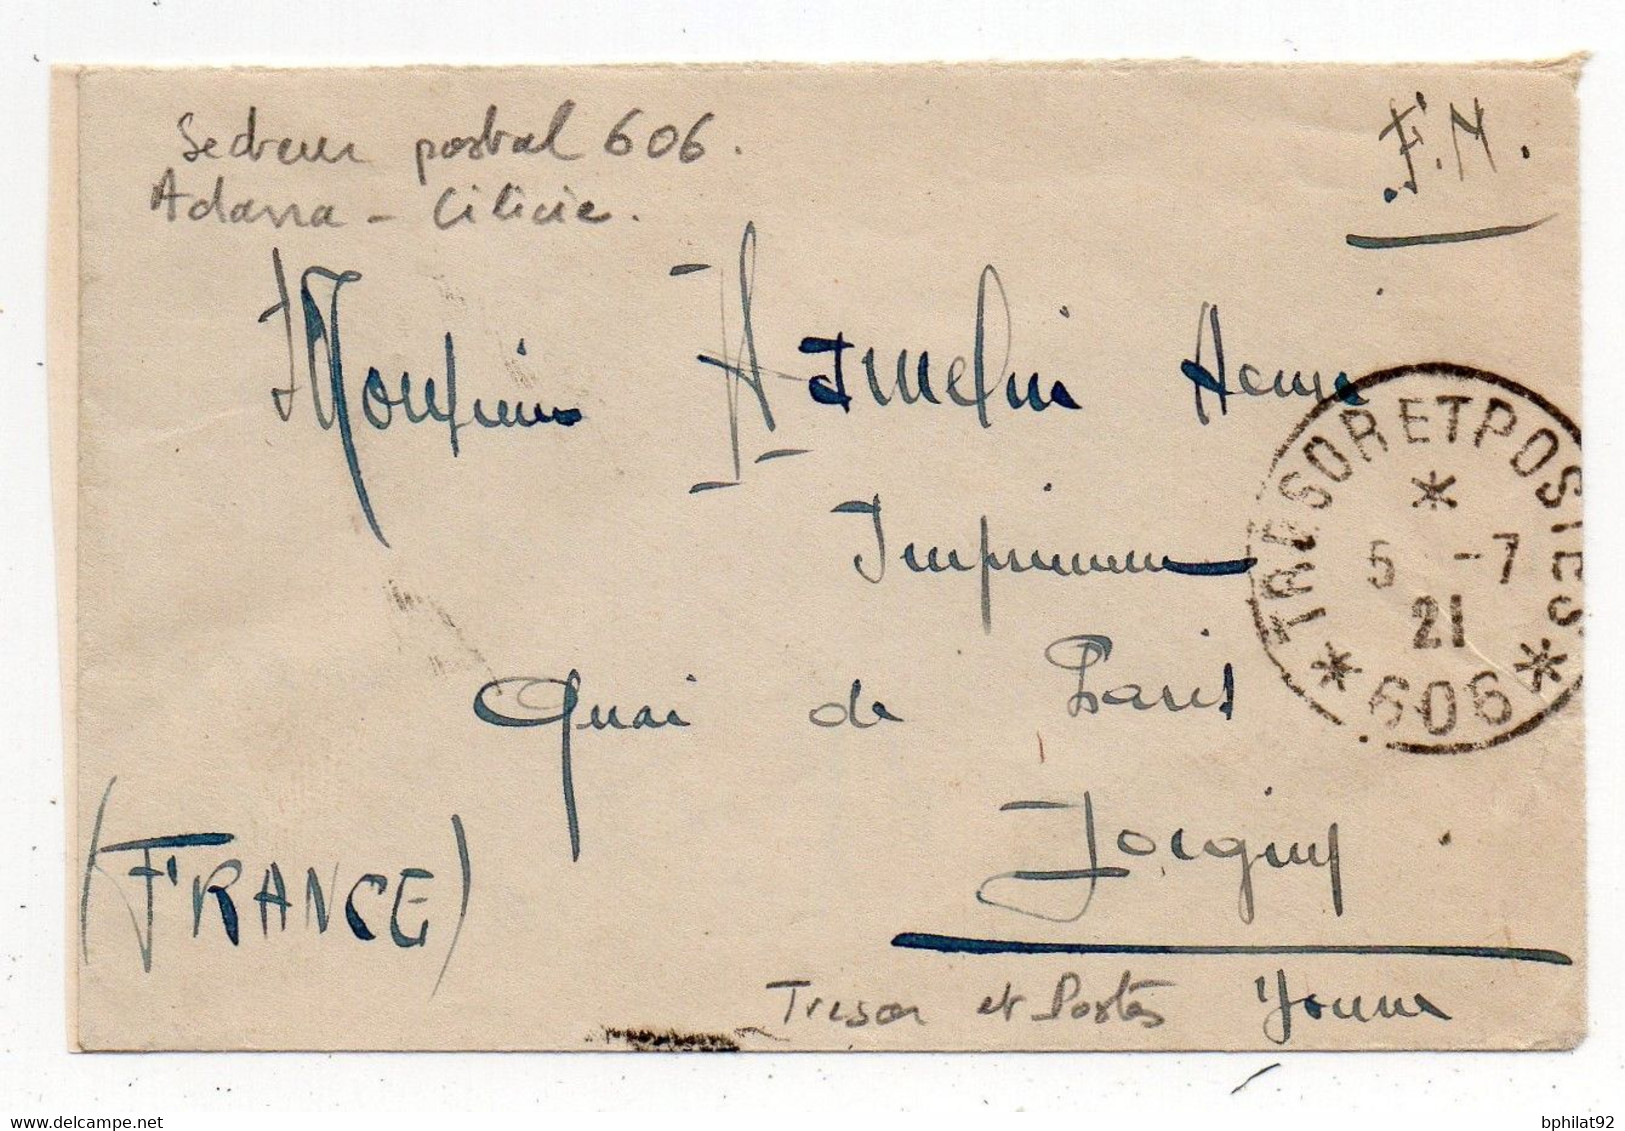 Secteur postal 606.
Adana - Cilicie.
F.M.
Monsieur Hamelin Henri
Imprimeur
Quai de Paris
Joigny
(FRANCE)
Yonne
Tresor et Postes
TRESOR ET POSTES
*
5 -7
21
* 606 *
bphilat92